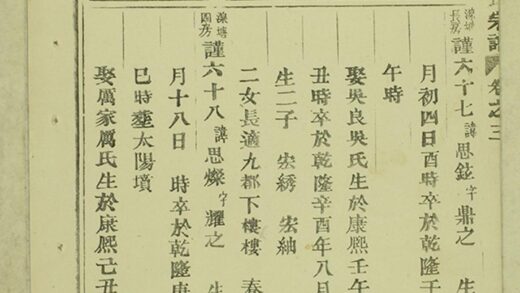 宗譜 卷之三
塘長房 謹六十七 諱思鉉 字鼎之 生
月初四日酉時卒於乾隆
午時
娶吳良吳氏生於康熙壬午
丑時卒於乾隆辛酉年八
生二子 宏綉 宏紬
二女長適九都下樓樓 春
塘四房 謹六十八 諱思燦 字耀之 生
月十八日 時卒於乾隆
巳時塟太陽墳
娶厲家厲氏生於康熙己丑